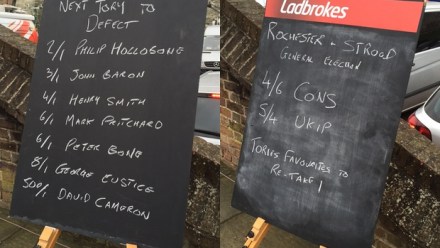 NEXT TORY TO
DEFECT
2/1 PHILIP HOLLOBONE
3/1 JOHN BARON
4/1 HENRY SMITH
6/1 MARK PRITCHARD
6/1 PETER BONE
8/1 GEORGE EUSTICE
500/1 DAVID CAMERON
Ladbrokes
ROCHESTER + STROOD
GENERAL ELECTION
4/6 CONS
5/4 UKIP
TORIES FAVOURITES TO
RE-TAKE!